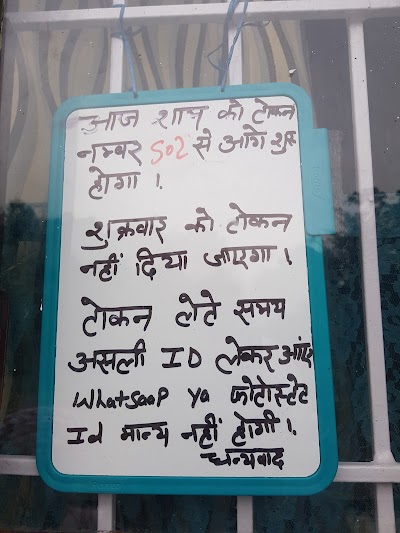 आज शाम को टोकन
नम्बर 502 से आगे शुरू
होगा ।
शुक्रवार को टोकन
नहीं दिया जाएगा ।
टोकन लेते समय
असली ID लेकर आएं
Whatsaap ya फोटोस्टेट
Id मान्य नहीं होगी ।
धन्यवाद